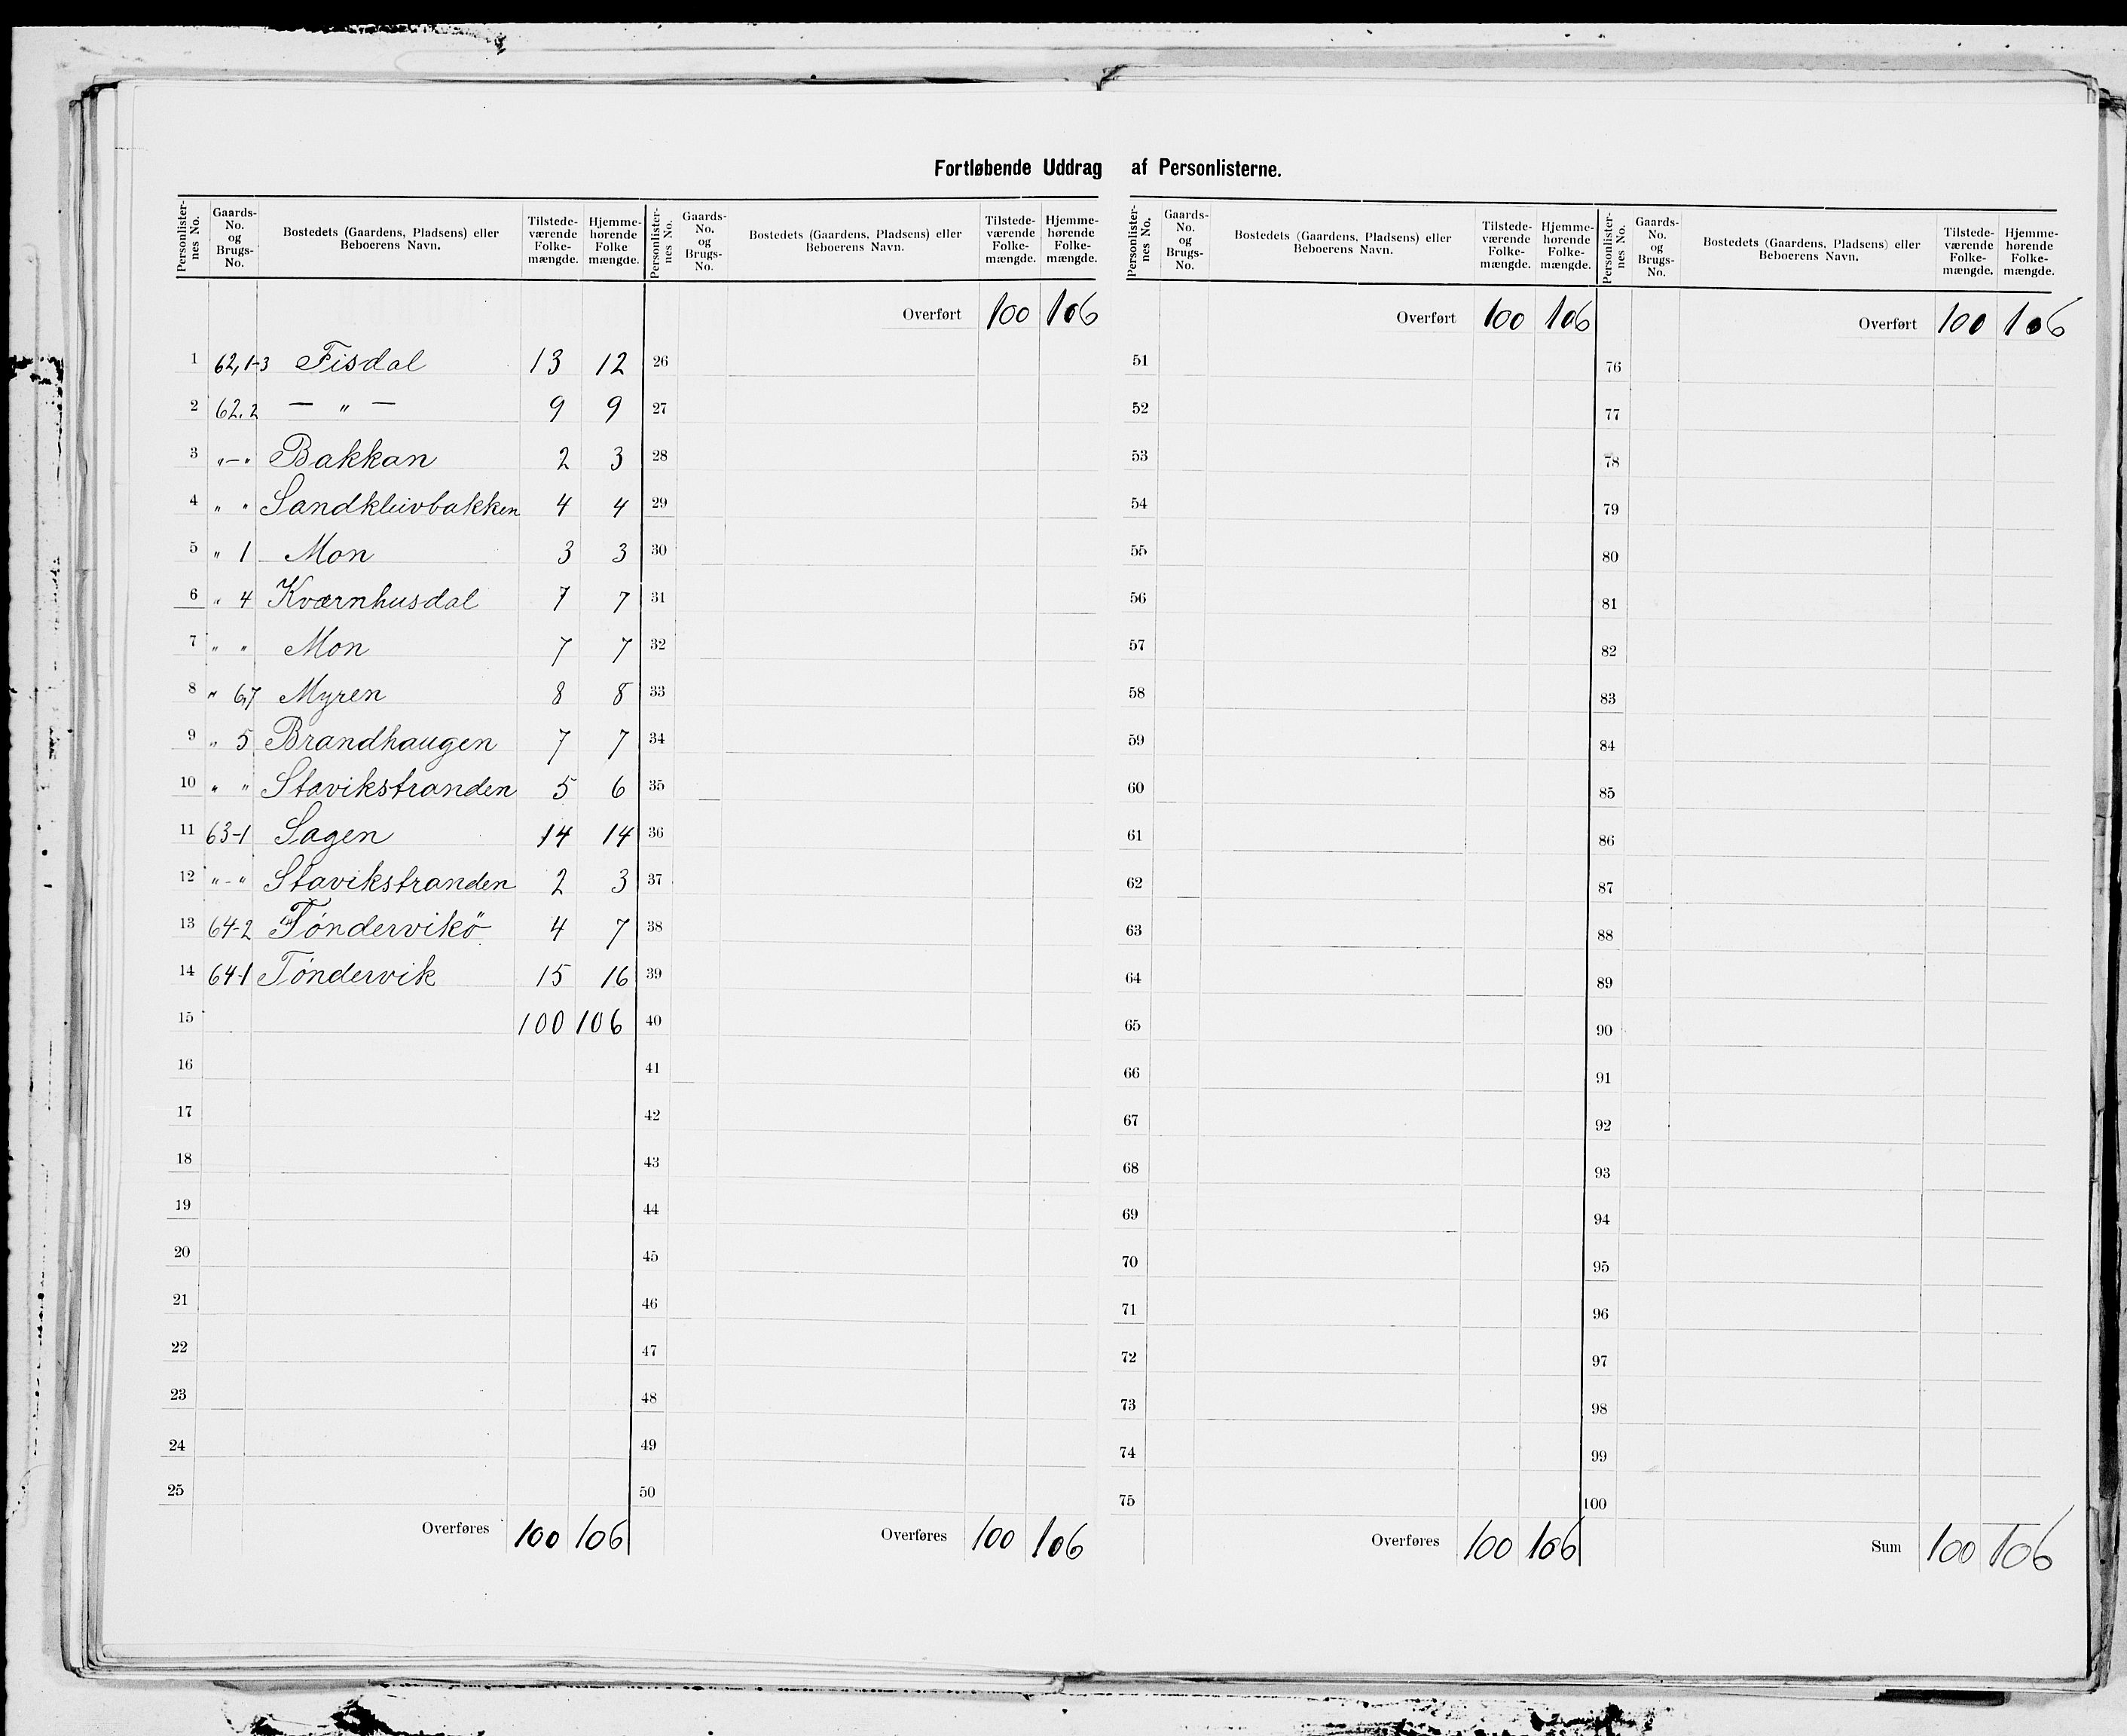 Fortløbende Uddrag af Personlisterne.
Personlister-nes No. Gaards-No. og Brugs-No. Bostedets (Gaardens, Pladsens) eller Beboerens Navn. Tilstede-værende Folke-mængde. Hjemme-hørende Folke mængde.
1 62,1-3 Fisdal 13 12
2 62.2 — " — 9 9
3 "–" Bakkan 2 3
4 " " Sandkleivbakken 4 4
5 " 1 Mon 3 3
6 " 4 Kværnhusdal 7 7
7 " " Mon 7 7
8 " 6,7 Myren 8 8
9 " 5 Brandhaugen 7 7
10 " " Stavikstranden 5 6
11 63-1 Sagen 14 14
12 "-" Stavikstranden 2 3
13 64-2 Tøndervikö 4 7
14 64-1 Tøndervik 15 16
15 100 106
16
17
18
19
20
21
22
23
24
25
Overføres 100 106
Personlister-nes No. Gaards-No. og Brugs-No. Bostedets (Gaardens, Pladsens) eller Beboerens Navn. Tilstede-værende Folke-mængde. Hjemme-hørende Folke-mængde.
Overført 100 106
26
27
28
29
30
31
32
33
34
35
36
37
38
39
40
41
42
43
44
45
46
47
48
49
50
Overføres 100 106
Personlister-nes No. Gaards-No. og Brugs-No. Bostedets (Gaardens, Pladsens) eller Beboerens Navn. Tilstede-værende Folke-mængde. Hjemme-hørende Folke-mængde.
Overført 100 106
51
52
53
54
55
56
57
58
59
60
61
62
63
64
65
66
67
68
69
70
71
72
73
74
75
Overføres 100 106
Personlister-nes No. Gaards-No. og Brugs-No. Bostedets (Gaardens, Pladsens) eller Beboerens Navn. Tilstede-værende Folke-mængde. Hjemme-hørende Folke-mængde.
Overført 100 106
76
77
78
79
80
81
82
83
84
85
86
87
88
89
90
91
92
93
94
95
96
97
98
99
100
Sum 100 106